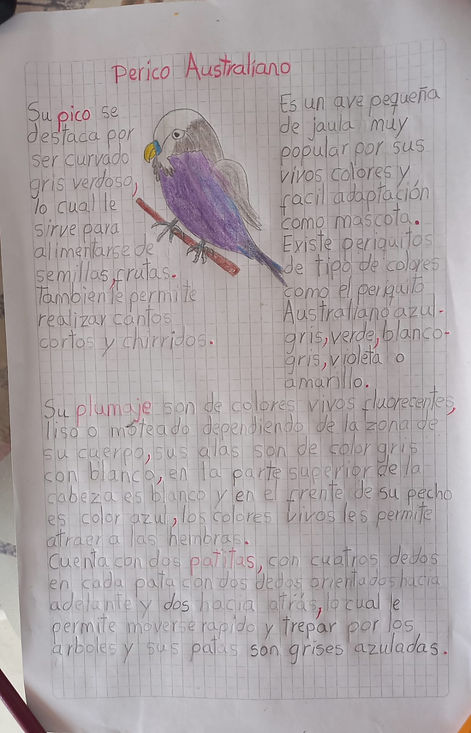 Perico Australiano
Su pico se
destaca por
ser curvado
gris verdoso,
lo cual le
sirve para
alimentarse de
semillas, frutas.
Tambien le permite
realizar cantos
cortos y chirridos.
Es un ave pequeña
de jaula muy
popular por sus
vivos colores y
facil adaptación
como mascota.
Existe periquitos
de tipo de colores
como el periquito
Australiano azul-
gris, verde, blanco-
gris, violeta o
amarillo.
Su plumaje son de colores vivos fluorecentes,
liso o moteado dependiendo de la zona de
su cuerpo, sus alas son de color gris
con blanco, en la parte superior de la
cabeza es blanco y en el frente de su pecho
es color azul, los colores vivos les permite
atraer a las hembras.
Cuenta con dos patitas, con cuatros dedos
en cada pata con dos dedos orientados hacia
adelante y dos hacia atrás, lo cual le
permite moverse rapido y trepar por los
arboles y sus patas son grises azuladas.